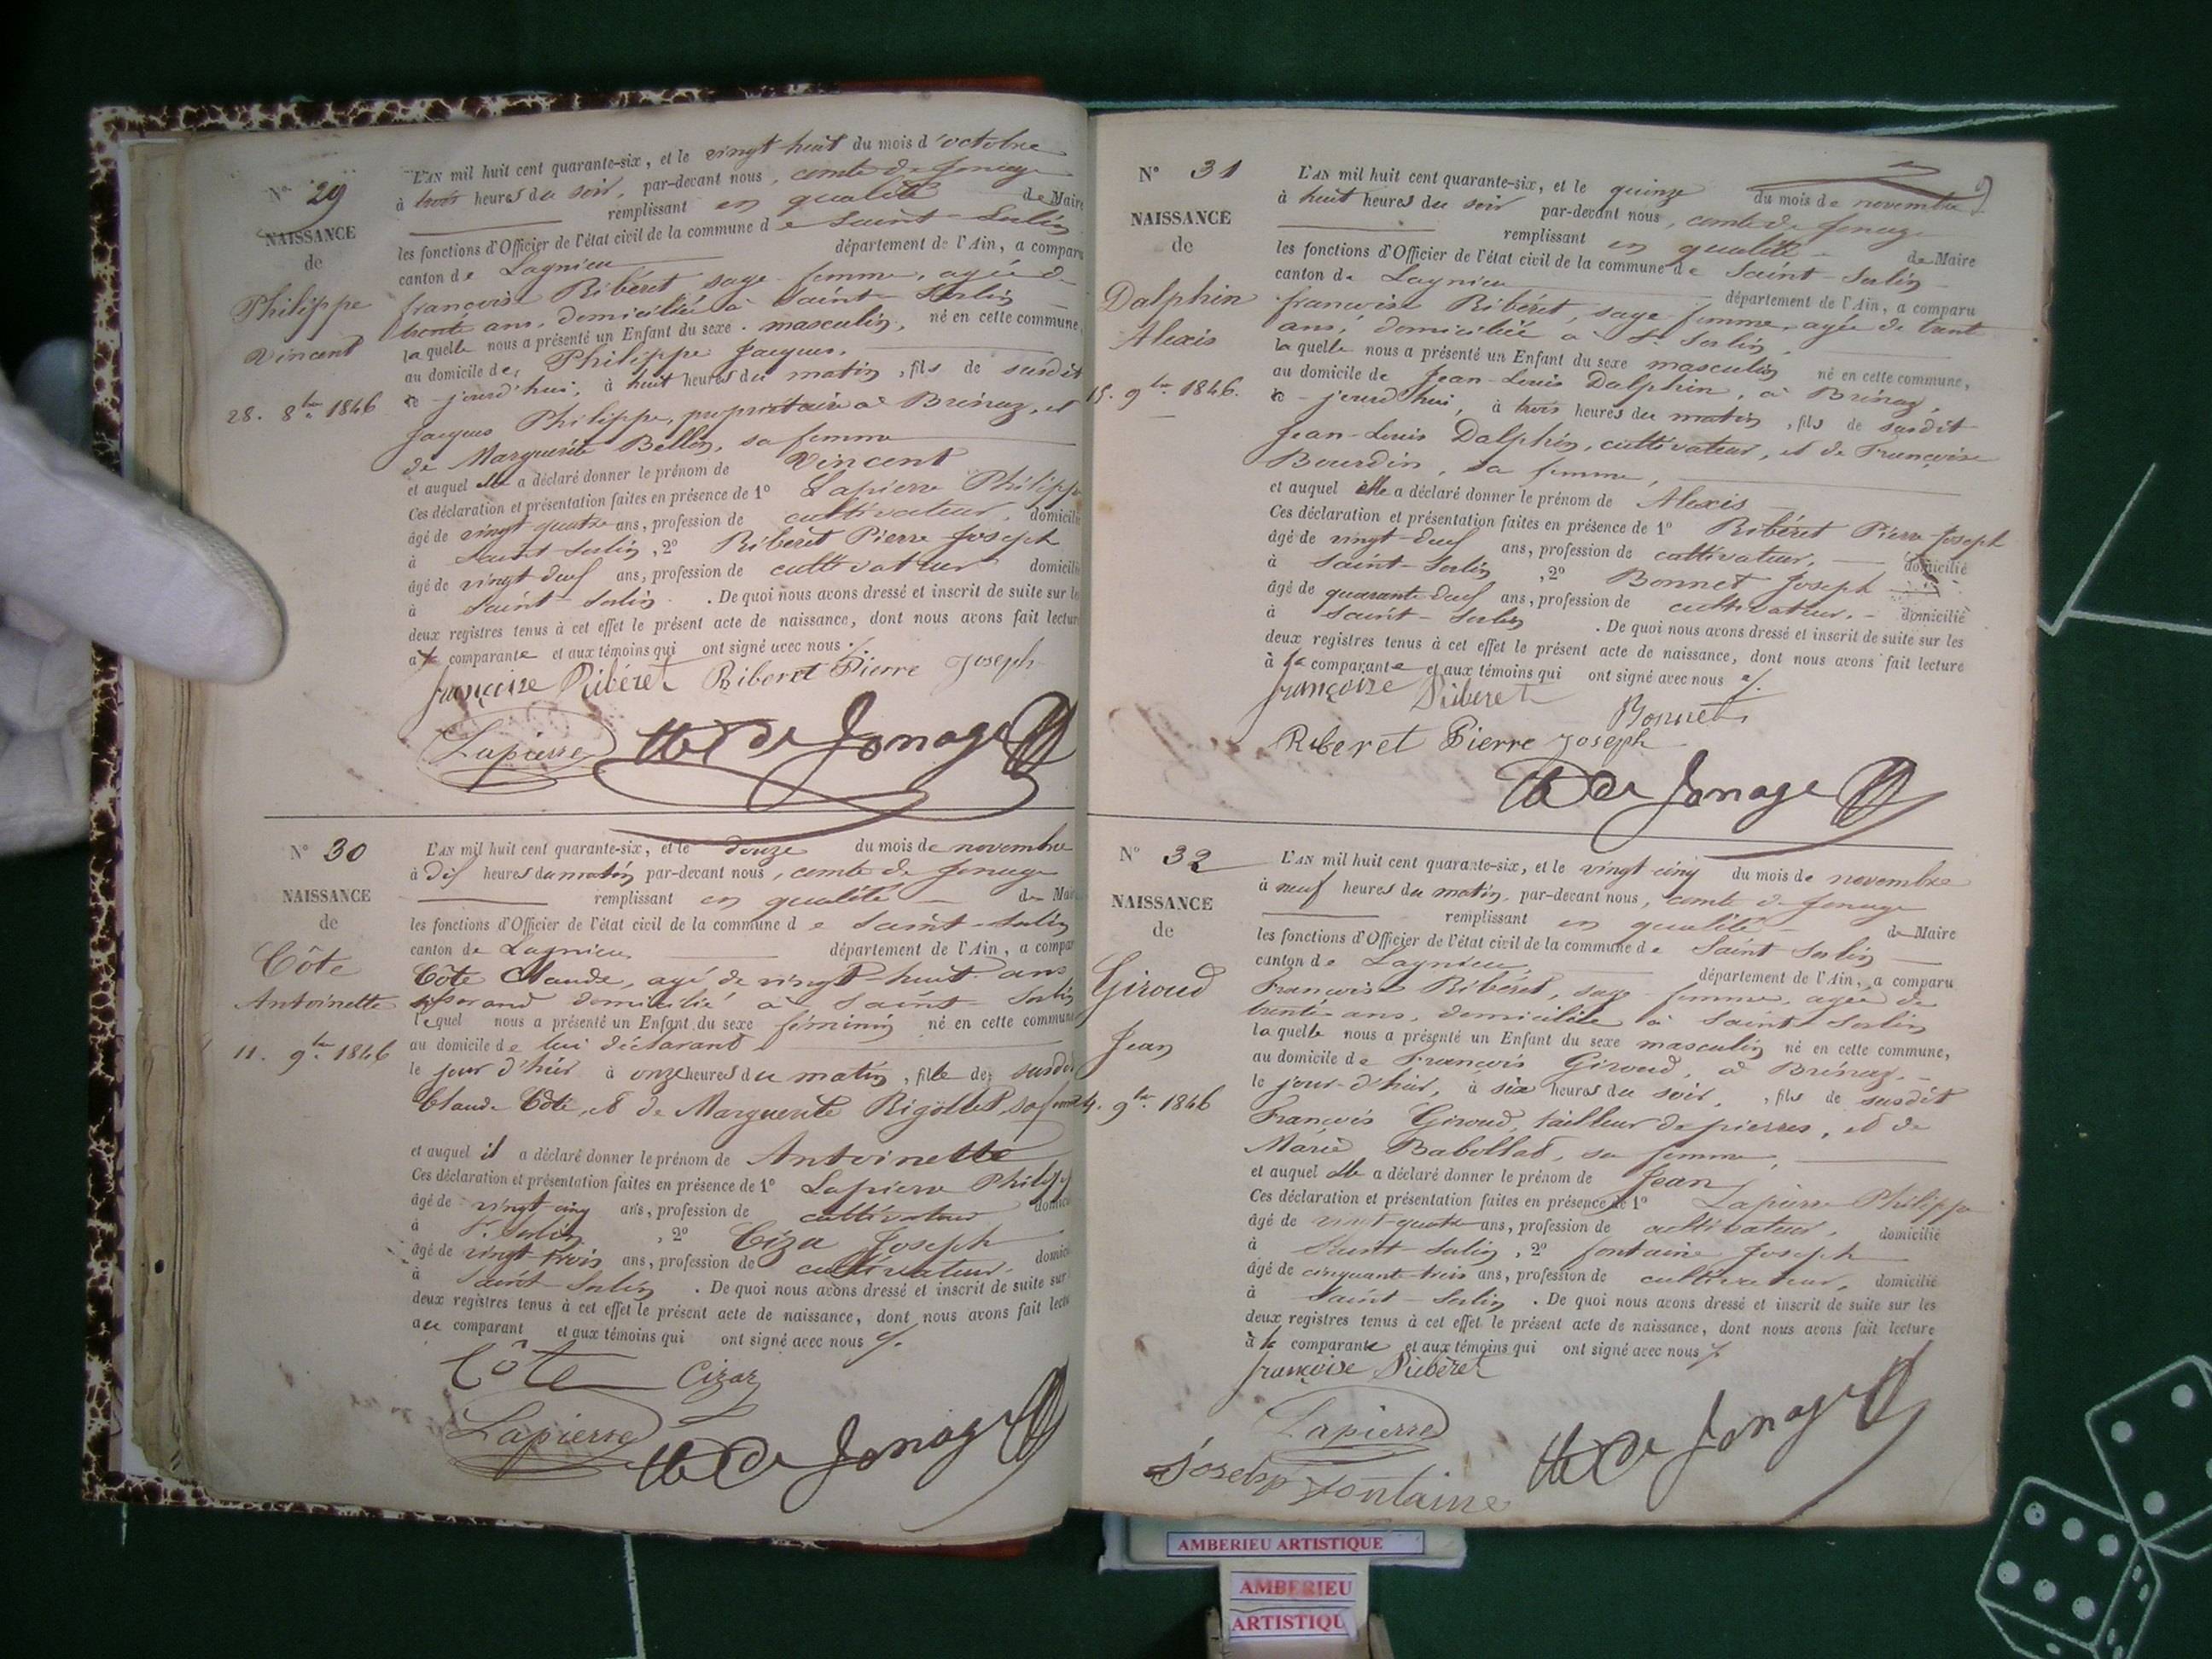 N° 29
NAISSANCE
de
Philippe
Vincent
28. 8bre 1846
L'AN mil huit cent quarante-six, et le vingt huit du mois d'octobre
à trois heures du soir, par-devant nous, comte de Jonage
remplissant en qualité de Maire
les fonctions d'Officier de l'état civil de la commune de Saint-Sorlin
canton de Lagnieu département de l'Ain, a comparu
françoise Ribéret sage-femme, agée de
trente ans, domiciliée à Saint-Sorlin
laquelle nous a présenté un Enfant du sexe masculin, né en cette commune,
au domicile de Philippe Jacques,
ce-jourd'hui, à huit heures du matin, fils de susdit
Jacques Philippe, propriétaire à Brénaz, et
de Marguerite Bellon, sa femme
et auquel elle a déclaré donner le prénom de Vincent
Ces déclaration et présentation faites en présence de 1° Lapierre Philippe
âgé de vingt quatre ans, profession de cultivateur, domicilié
à Saint-Sorlin, 2° Ribéret Pierre Joseph
âgé de vingt deuf ans, profession de cultivateur domicilié
à Saint-Sorlin. De quoi nous avons dressé et inscrit de suite sur les
deux registres tenus à cet effet le présent acte de naissance, dont nous avons fait lecture
à la comparante et aux témoins qui ont signé avec nous
françoise Ribéret Riberet Pierre Joseph
Lapierre Cte De Jonage
N° 30
NAISSANCE
de
Côte
Antoinette
11. 9bre 1846
L'AN mil huit cent quarante-six, et le douze du mois de novembre
à dix heures du matin par-devant nous, comte de Jonage
remplissant en qualité de Maire
les fonctions d'Officier de l'état civil de la commune de Saint-Sorlin
canton de Lagnieu département de l'Ain, a comparu
Côte Claude, agé de vingt-huit ans
tisserand domicilié à Saint-Sorlin
lequel nous a présenté un Enfant du sexe féminin né en cette commune
au domicile de lui déclarant,
le jour d'hier à onze heures du matin, fille de susdit
Claude Côte, et de Marguerite Rigollet, sa femme
et auquel il a déclaré donner le prénom de Antoinette
Ces déclaration et présentation faites en présence de 1° Lapierre Philippe
âgé de vingt-cinq ans, profession de cultivateur domicilié
à St Sorlin, 2° Ciza Joseph
âgé de vingt-trois ans, profession de cultivateur, domicilié
à Saint-Sorlin. De quoi nous avons dressé et inscrit de suite sur
deux registres tenus à cet effet le présent acte de naissance, dont nous avons fait lecture
au comparant et aux témoins qui ont signé avec nous
Côte Cizaz
Lapierre Cte De Jonage
N° 31
NAISSANCE
de
Dalphin
Alexis
15. 9bre 1846.
L'AN mil huit cent quarante-six, et le quinze du mois de novembre
à huit heures du soir par-devant nous, comte de Jonage
remplissant en qualité de Maire
les fonctions d'Officier de l'état civil de la commune de Saint-Sorlin
canton de Lagnieu département de l'Ain, a comparu
françoise Ribéret, sage-femme, agée de trente
ans, domiciliée à St Sorlin,
laquelle nous a présenté un Enfant du sexe masculin né en cette commune,
au domicile de Jean-Louis Dalphin, à Brénaz,
ce-jourd'hui, à trois heures du matin, fils de susdit
Jean-Louis Dalphin, cultivateur, et de Françoise
Bourdin, sa femme,
et auquel elle a déclaré donner le prénom de Alexis
Ces déclaration et présentation faites en présence de 1° Ribéret Pierre Joseph
âgé de vingt-deuf ans, profession de cultivateur, domicilié
à Saint-Sorlin, 2° Bonnet Joseph
âgé de quarante deuf ans, profession de cultivateur, domicilié
à Saint-Sorlin. De quoi nous avons dressé et inscrit de suite sur les
deux registres tenus à cet effet le présent acte de naissance, dont nous avons fait lecture
à la comparante et aux témoins qui ont signé avec nous
françoise Ribéret
Bonnet
Riberet Pierre Joseph
Cte De Jonage
N° 32
NAISSANCE
de
Giroud
Jean
24. 9bre 1846
L'AN mil huit cent quarante-six, et le vingt cinq du mois de novembre
à neuf heures du matin, par-devant nous, comte de Jonage
remplissant en qualité de Maire
les fonctions d'Officier de l'état civil de la commune de Saint Sorlin
canton de Lagnieu, département de l'Ain, a comparu
Françoise Ribéret, sage-femme, agée de
trente ans, domiciliée à Saint-Sorlin
laquelle nous a présenté un Enfant du sexe masculin né en cette commune,
au domicile de François Giroud, à Brénaz,
le jour-d'hier, à six heures du soir, fils de susdit
François Giroud, tailleur de pierres, et de
Marie Babollat, sa femme,
et auquel elle a déclaré donner le prénom de Jean
Ces déclaration et présentation faites en présence de 1° Lapierre Philippe
âgé de vingt-quatre ans, profession de cultivateur, domicilié
à Saint-Sorlin, 2° fontaine Joseph
âgé de cinquante-trois ans, profession de cultivateur, domicilié
à Saint-Sorlin. De quoi nous avons dressé et inscrit de suite sur les
deux registres tenus à cet effet le présent acte de naissance, dont nous avons fait lecture
à la comparante et aux témoins qui ont signé avec nous
françoise Ribéret
Lapierre
Cte De Jonage
Joseph fontaine
AMBERIEU ARTISTIQUE
AMBERIEU
ARTISTIQU